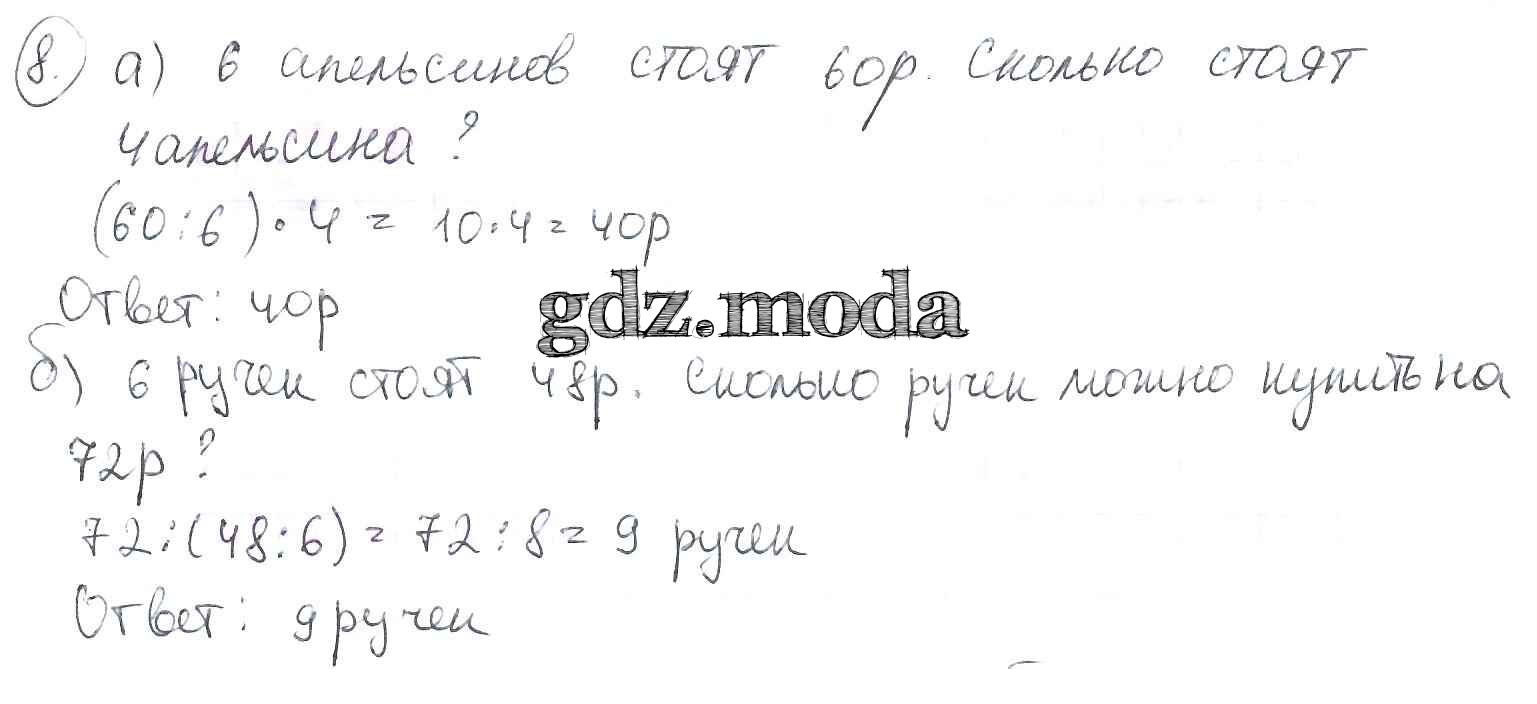 8. а) 6 апельсинов стоят 60р. Сколько стоят
4 апельсина ?
(60:6)·4 = 10·4 = 40р
Ответ: 40р
gdz.moda
б) 6 ручек стоят 48р. Сколько ручек можно купить на
72р ?
72:(48:6) = 72:8 = 9 ручек
Ответ: 9 ручек